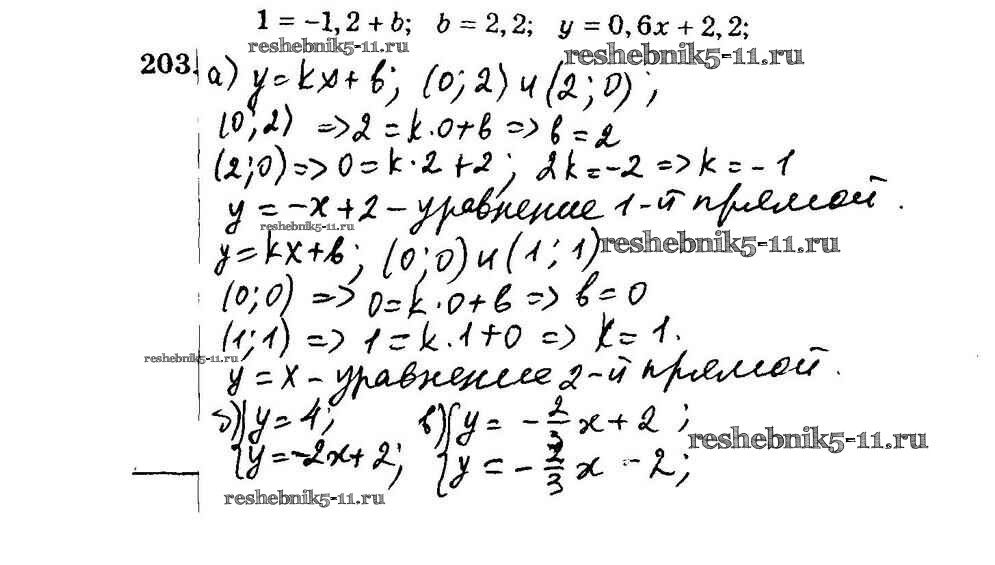 1 = -1,2 + b; b = 2,2; y = 0,6x + 2,2;
reshebnik5-11.ru
reshebnik5-11.ru
203. а) y = kx + b; (0; 2) и (2; 0);
(0; 2) => 2 = k·0+b => b = 2
(2; 0) => 0 = k·2 + 2; 2k = -2 => k = -1
y = -x + 2 - уравнение 1-й прямой.
reshebnik5-11.ru
y = kx + b; (0; 0) и (1; 1)
reshebnik5-11.ru
(0; 0) => 0 = k·0 + b => b = 0
(1; 1) => 1 = k·1 + 0 => k = 1.
reshebnik5-11.ru
y = x - уравнение 2-й прямой.
б) { y = 4; в) { y = -2/3 x + 2;
reshebnik5-11.ru
y = -2x + 2; y = -2/3 x - 2;
reshebnik5-11.ru